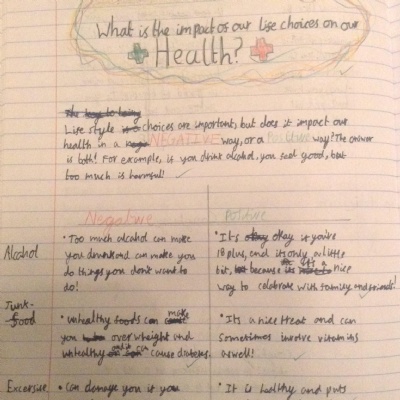 What is the impact of our life choices on our
Health?
Life style choices are important, but does it impact our
health in a NEGATIVE way, or a Positive way? The answer
is both! For example, is you drink alcohol, you feel good, but
too much is harmful!
Negative
Positive
Alcohol
• Too much alcohol can make
you drunk and can make you
do things you don't want to
do!
• It's okay if you're
18 plus, and its only a little
bit, because its a nice
way to celebrate with family and friends!
Junk-
food
• unhealthy foods can make
you overweight and
unhealthy and it can cause diabetes.
• Its a nice treat and can
sometimes involve vitamins
aswell!
Excersise
• Can damage you if you
• It is healthy and puts